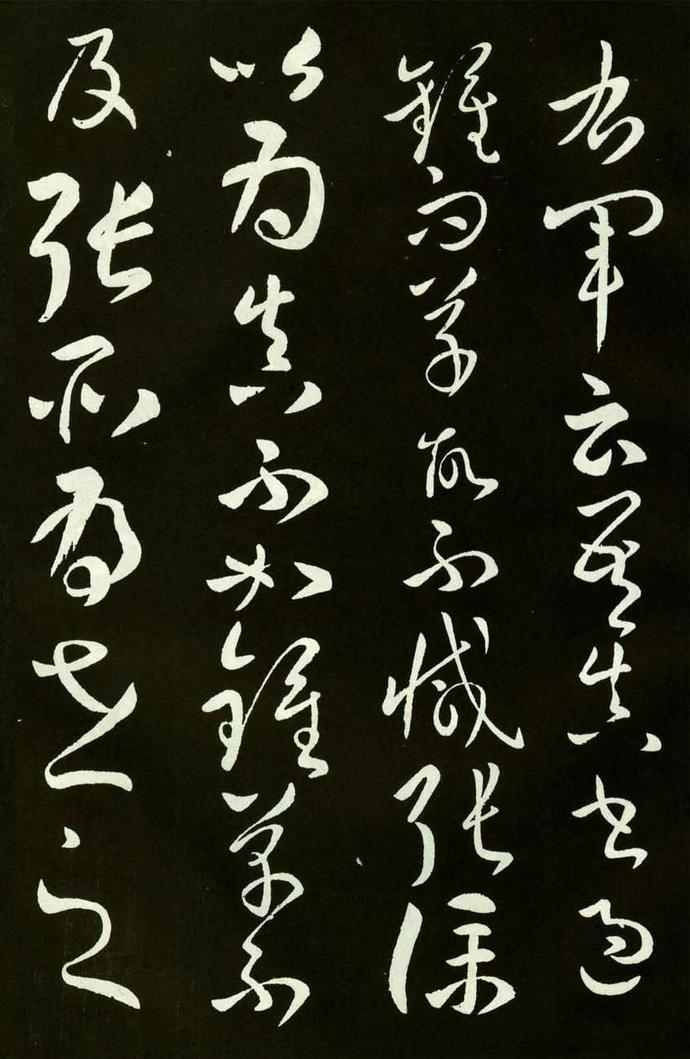 右軍云吾真書過
鍾而草故不減張僕
以為真不如鍾草不
及張所為世之